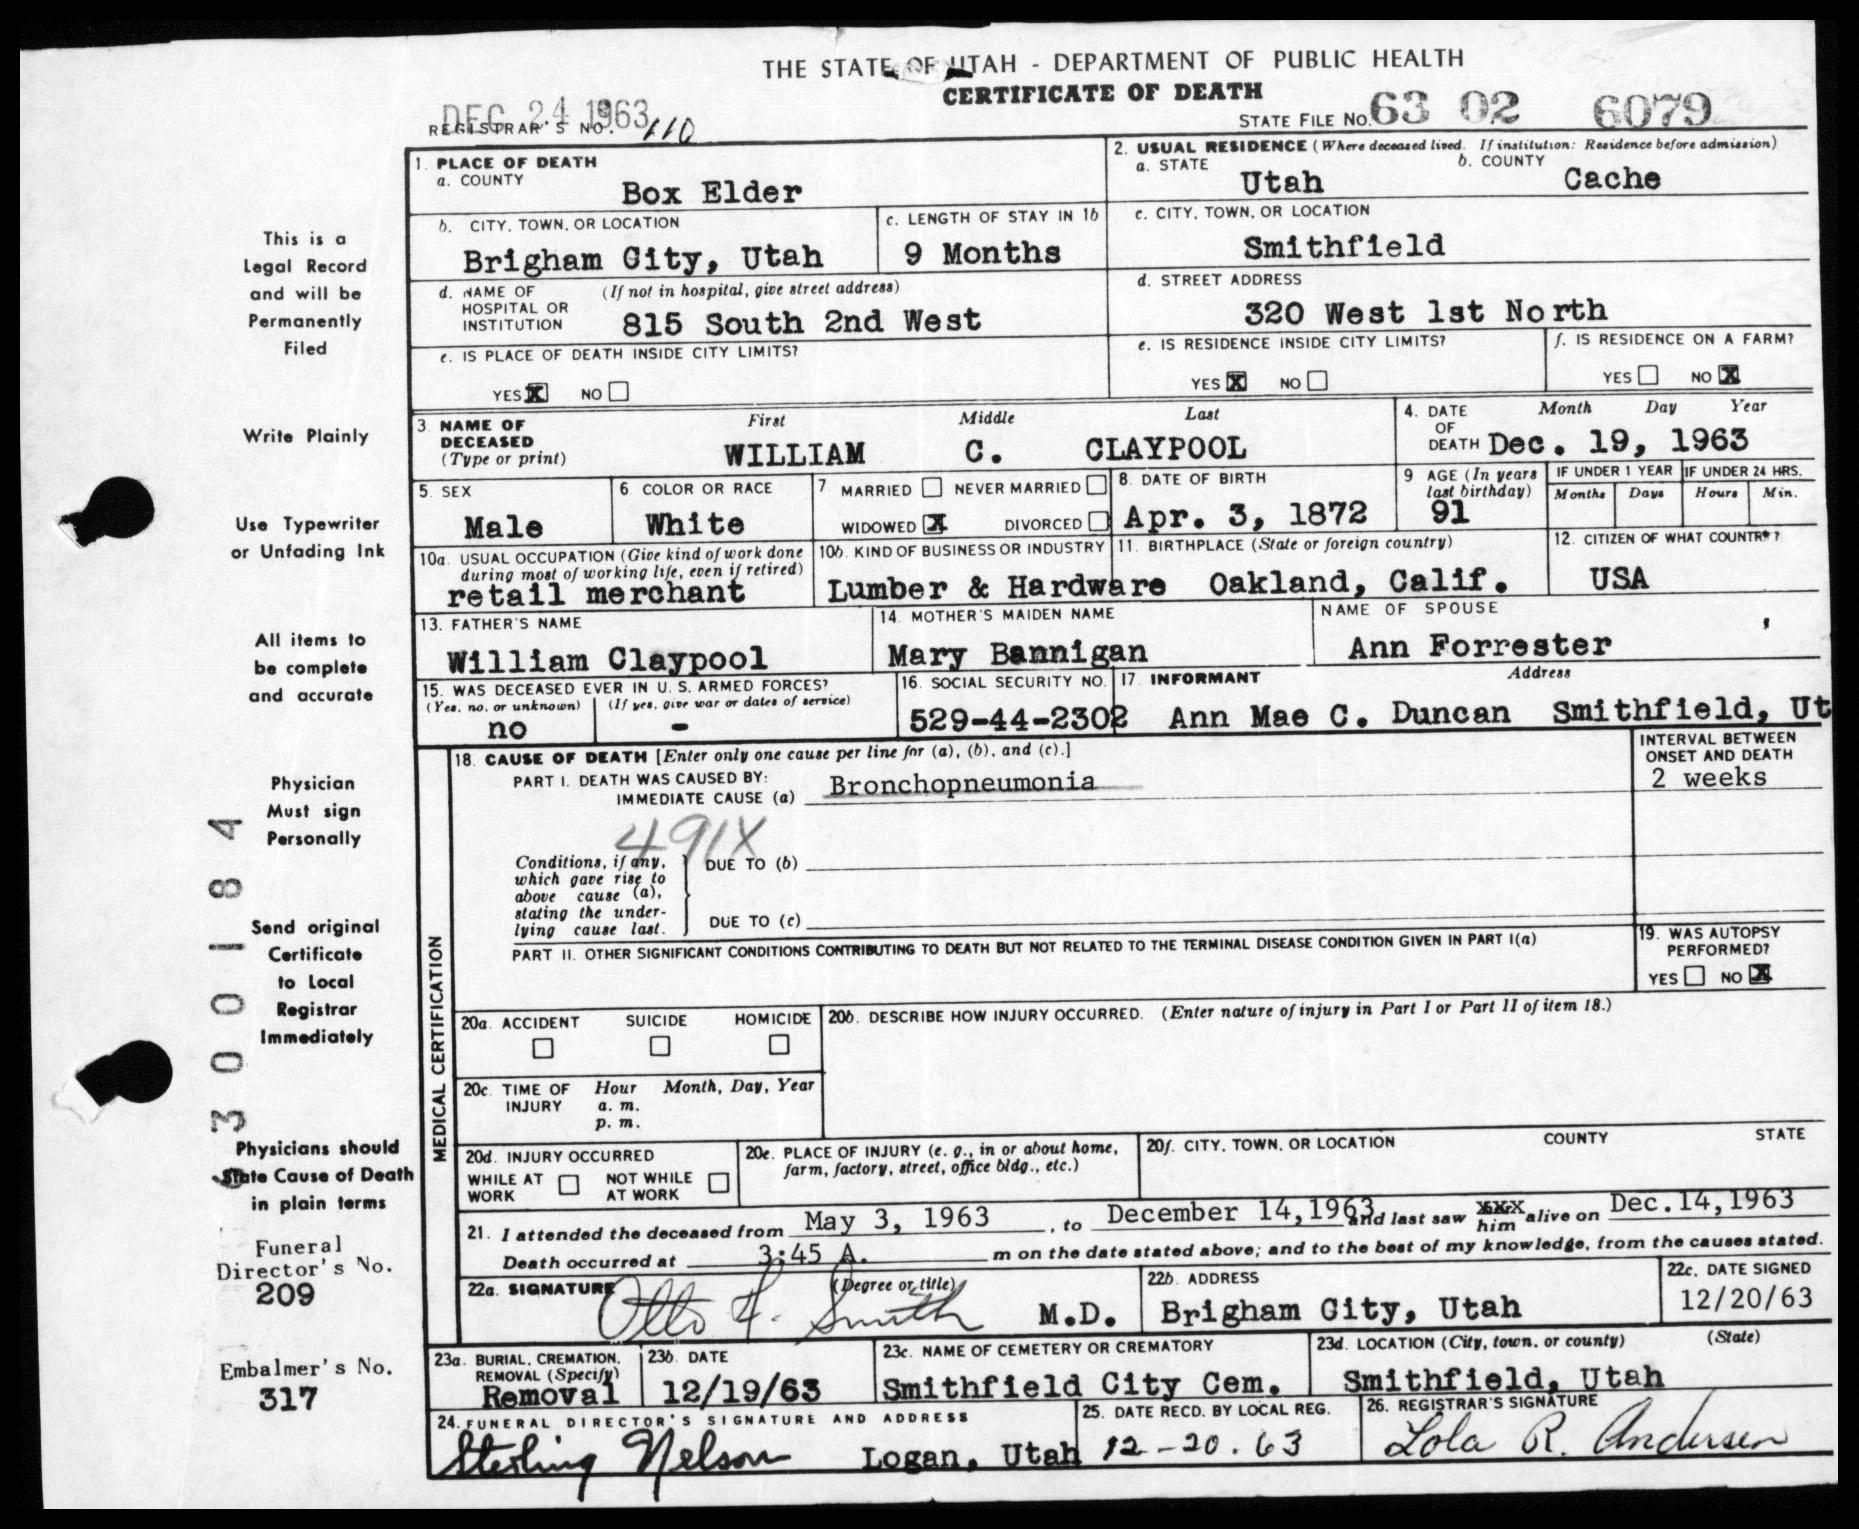 THE STATE OF UTAH - DEPARTMENT OF PUBLIC HEALTH
CERTIFICATE OF DEATH
DEC 24 1963
REGISTRAR'S NO. 110
STATE FILE NO. 63 02 6079
1. PLACE OF DEATH
a. COUNTY
Box Elder
2. USUAL RESIDENCE (Where deceased lived. If institution: Residence before admission)
a. STATE b. COUNTY
Utah Cache
b. CITY, TOWN, OR LOCATION
Brigham City, Utah
c. LENGTH OF STAY IN 1b
9 Months
c. CITY, TOWN, OR LOCATION
Smithfield
d. NAME OF HOSPITAL OR INSTITUTION (If not in hospital, give street address)
815 South 2nd West
d. STREET ADDRESS
320 West 1st North
e. IS PLACE OF DEATH INSIDE CITY LIMITS?
YES X NO
e. IS RESIDENCE INSIDE CITY LIMITS?
YES X NO
f. IS RESIDENCE ON A FARM?
YES NO X
3. NAME OF DECEASED (Type or print)
First Middle Last
WILLIAM C. CLAYPOOL
4. DATE OF DEATH
Month Day Year
Dec. 19, 1963
5. SEX
Male
6 COLOR OR RACE
White
7 MARRIED NEVER MARRIED
WIDOWED X DIVORCED
8. DATE OF BIRTH
Apr. 3, 1872
9 AGE (In years last birthday)
91
IF UNDER 1 YEAR
Months Days
IF UNDER 24 HRS.
Hours Min.
10a. USUAL OCCUPATION (Give kind of work done during most of working life, even if retired)
retail merchant
10b. KIND OF BUSINESS OR INDUSTRY
Lumber & Hardware
11. BIRTHPLACE (State or foreign country)
Oakland, Calif.
12. CITIZEN OF WHAT COUNTRY?
USA
13. FATHER'S NAME
William Claypool
14. MOTHER'S MAIDEN NAME
Mary Bannigan
NAME OF SPOUSE
Ann Forrester
15. WAS DECEASED EVER IN U. S. ARMED FORCES?
(Yes, no, or unknown) (If yes, give war or dates of service)
no -
16. SOCIAL SECURITY NO.
529-44-2302
17 INFORMANT Address
Ann Mae C. Duncan Smithfield, Ut
18. CAUSE OF DEATH [Enter only one cause per line for (a), (b), and (c).]
PART I. DEATH WAS CAUSED BY:
IMMEDIATE CAUSE (a) Bronchopneumonia
INTERVAL BETWEEN ONSET AND DEATH
2 weeks
491X
Conditions, if any, which gave rise to above cause (a), stating the underlying cause last.
DUE TO (b)
DUE TO (c)
PART II. OTHER SIGNIFICANT CONDITIONS CONTRIBUTING TO DEATH BUT NOT RELATED TO THE TERMINAL DISEASE CONDITION GIVEN IN PART I(a)
19. WAS AUTOPSY PERFORMED?
YES NO X
MEDICAL CERTIFICATION
20a. ACCIDENT SUICIDE HOMICIDE
20b. DESCRIBE HOW INJURY OCCURRED. (Enter nature of injury in Part I or Part II of item 18.)
20c. TIME OF INJURY Hour Month, Day, Year
a. m.
p. m.
20d. INJURY OCCURRED
WHILE AT WORK NOT WHILE AT WORK
20e. PLACE OF INJURY (e. g., in or about home, farm, factory, street, office bldg., etc.)
20f. CITY, TOWN, OR LOCATION COUNTY STATE
21. I attended the deceased from May 3, 1963, to December 14, 1963 and last saw him alive on Dec. 14, 1963
Death occurred at 3:45 A. m on the date stated above; and to the best of my knowledge, from the causes stated.
22a. SIGNATURE (Degree or title)
Otto F. Smith M.D.
22b. ADDRESS
Brigham City, Utah
22c. DATE SIGNED
12/20/63
23a. BURIAL, CREMATION, REMOVAL (Specify)
Removal
23b. DATE
12/19/63
23c. NAME OF CEMETERY OR CREMATORY
Smithfield City Cem.
23d. LOCATION (City, town, or county) (State)
Smithfield, Utah
24. FUNERAL DIRECTOR'S SIGNATURE AND ADDRESS
Sterling Nelson Logan, Utah
25. DATE RECD. BY LOCAL REG.
12-20-63
26. REGISTRAR'S SIGNATURE
Lola R. Andersen
This is a
Legal Record
and will be
Permanently
Filed
Write Plainly
Use Typewriter
or Unfading Ink
All items to
be complete
and accurate
Physician
Must sign
Personally
Send original
Certificate
to Local
Registrar
Immediately
Physicians should
State Cause of Death
in plain terms
Funeral
Director's No.
209
Embalmer's No.
317
300184